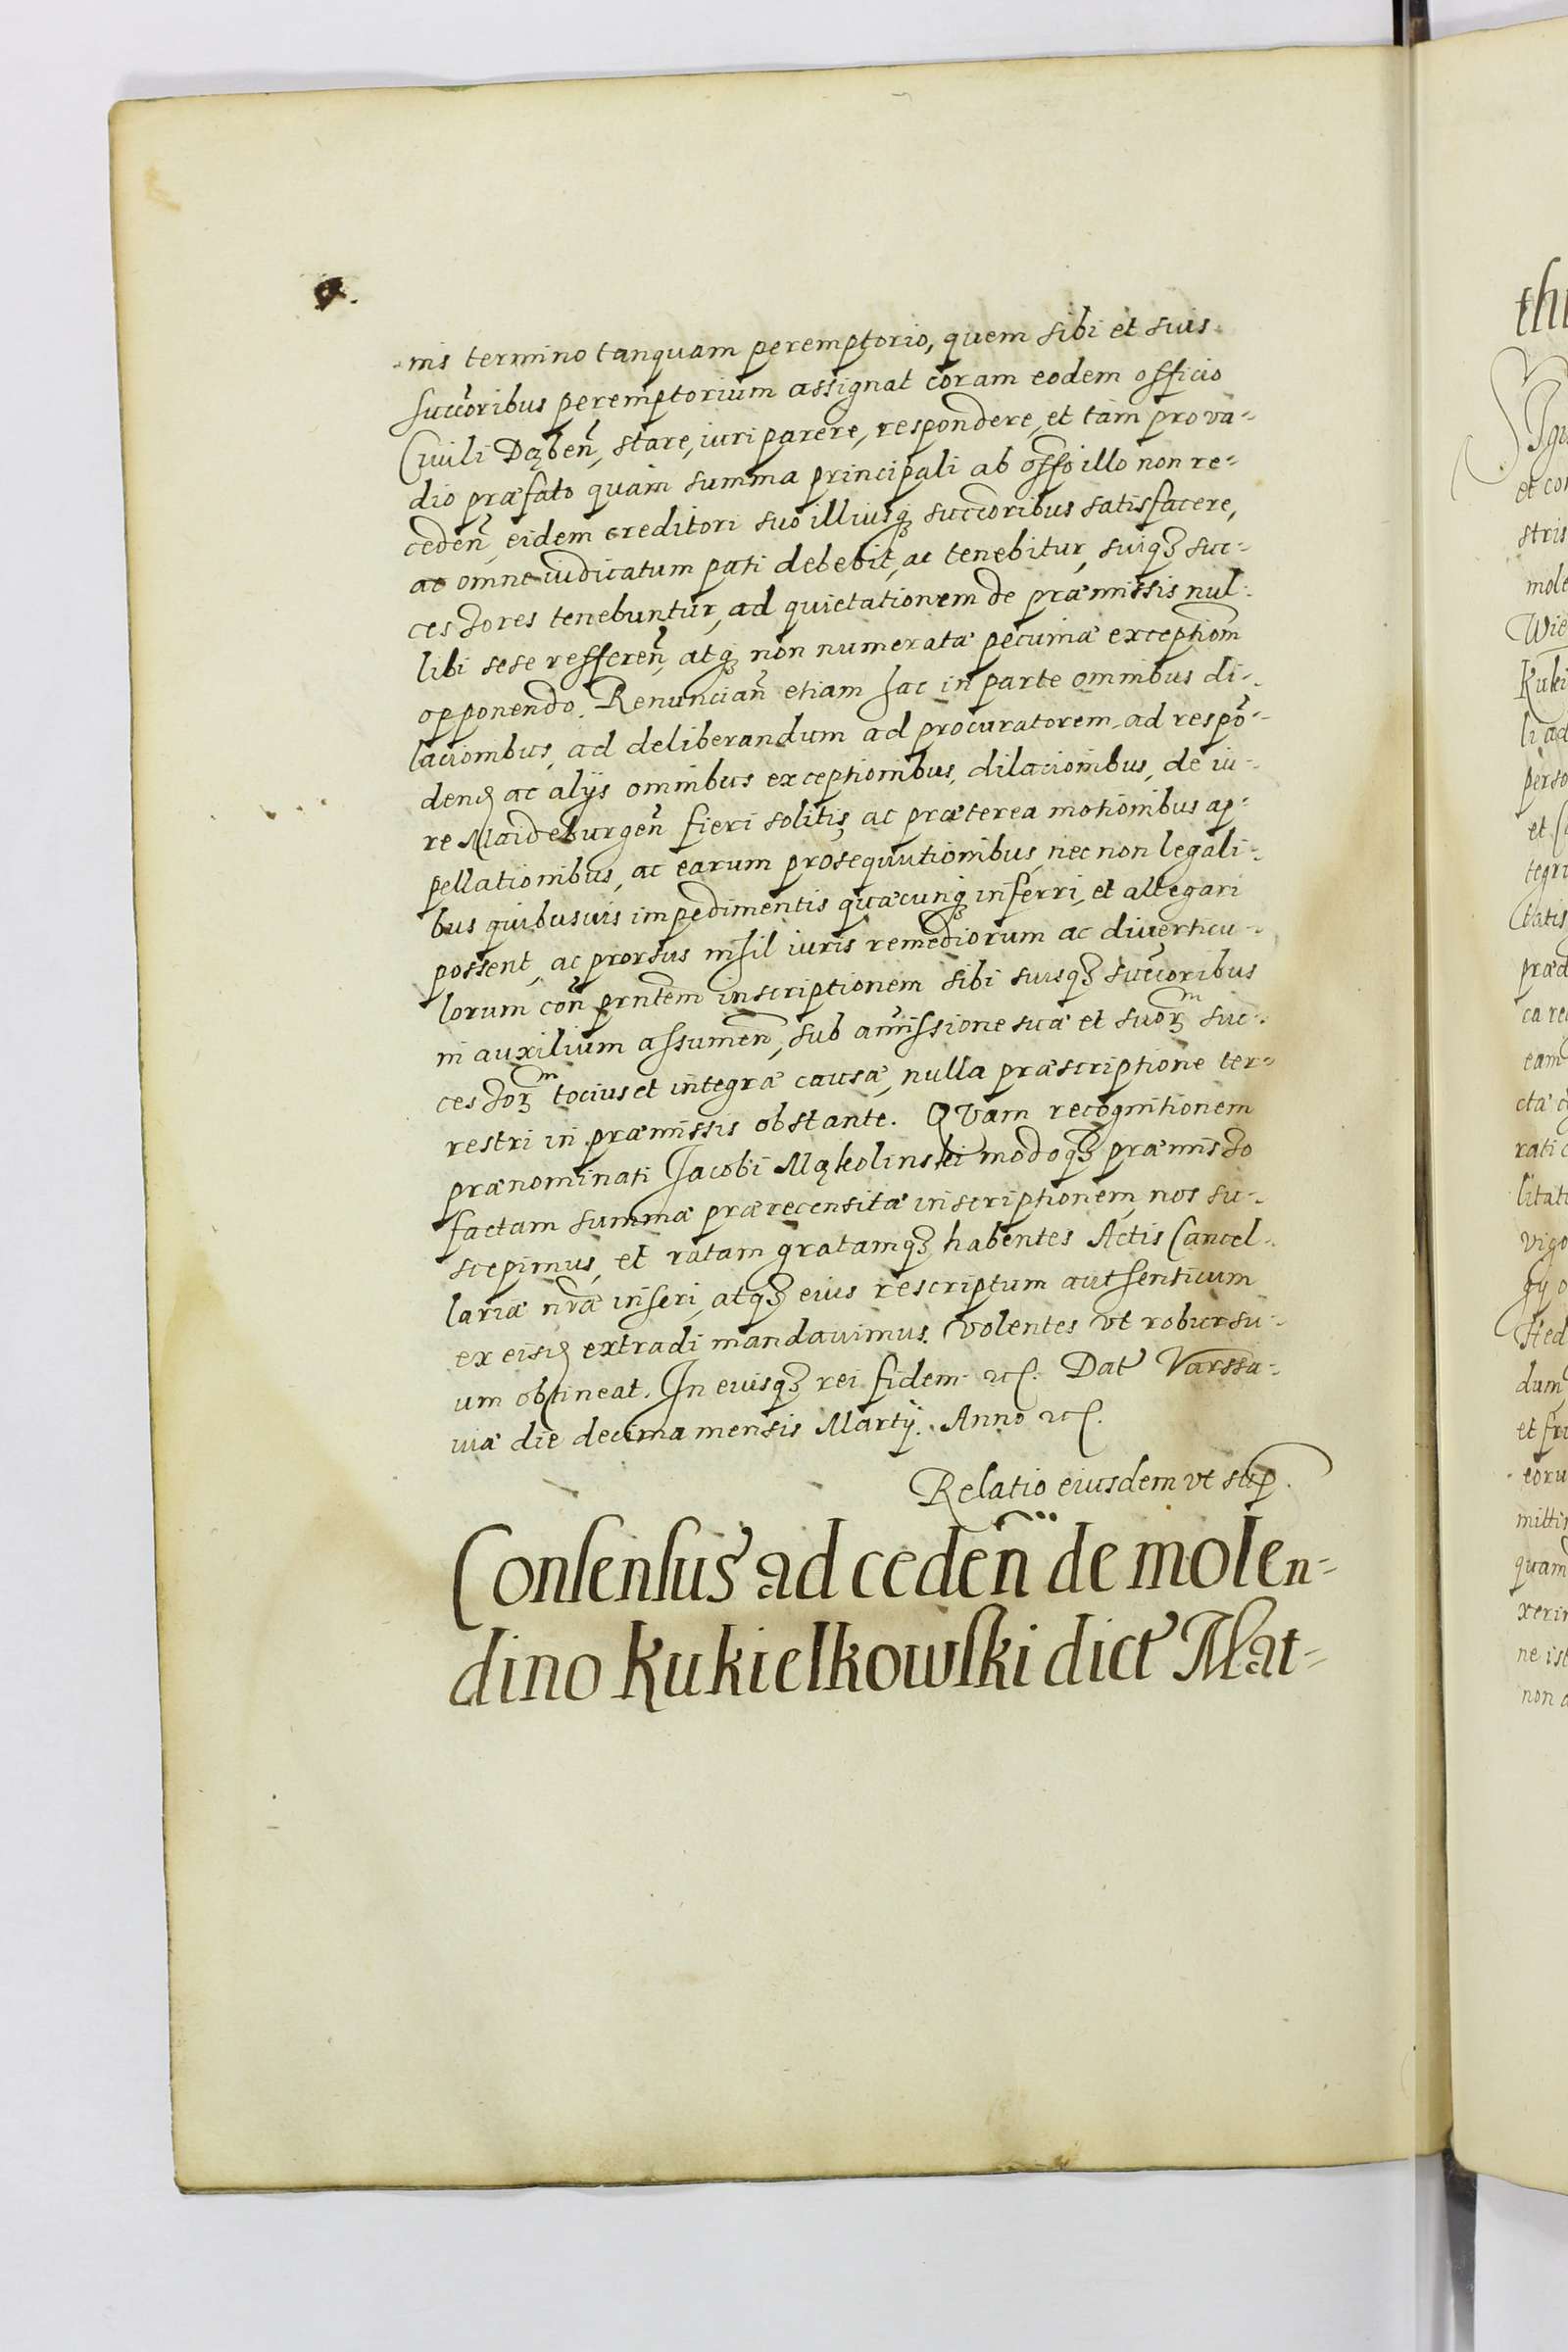 nis termino tanquam peremptorio, quem sibi et suis
succ̃oribus peremptorium assignat coram eodem officio
Ciuili Dąbeñ, stare, iuri parere, respondere, et tam pro va-
dio præfato quàm summa principali ab offo illo non re-
cedeñ, eidem creditori suo illiusqꝫ succ̃oribus satisfacere,
ac omne iudicatum pati debebit, ac tenebitur, suiqꝫ suc-
cessores tenebuntur, ad quietationem de præmissis nul-
libi sese refferen̄, atqꝫ non numeratæ pecuniæ exceptiom̃
opponendo. Renuncian̄ etiam hac in parte omnibus di-
lacionibus, ad deliberandum ad procuratorem, ad respō-
dend ac alijs omnibus exceptionibus, dilacionibus, de iu-
re Maideburgen̄ fieri solitis, ac præterea motionibus ap-
pellationibus, ac earum prosequutionibus, nec non legali-
bus quibusuis impedimentis quæcunqꝫ inferri, et allegari
possent, ac prorsus nihil iuris remediorum ac diuerticu-
lorum con̄ prntem̄ inscriptionem sibi suisqꝫ succ̃oribus
in auxilium assumen̄, sub amissione suæ et suorꝫm suc-
cessorꝫm tocius et integræ causæ, nulla præscriptione ter-
restri in præmissis obstante. Qvam recognitionem
prænominati Jacobi Mąkolinski modoqꝫ præmisso
factam summæ prærecensitæ inscriptionem, nos su-
scepimus, et ratam gratamqꝫ habentes Actis Cancel-
lariæ nr̃æ inseri, atqꝫ eius rescriptum authenticum
ex eisd extradi mandauimus. Volentes vt robur su-
um obtineat. In cuiusqꝫ rei fidem etc. Dat Varssa-
uiæ die decima mensis Martij. Anno etc.
Relatio eiusdem vt sup.
Consensus ad ceden̄ de molen-
dino Kukielkowski dict Mat-
thi
et con
stris
mole
Wie
Kuki
li ad
perso
et
tegri
tatis
præd
ca re
eam
ctæ
rati
litat
vigo
dum
et fru
eoru
mitti
quam
xerin
ne ist
non